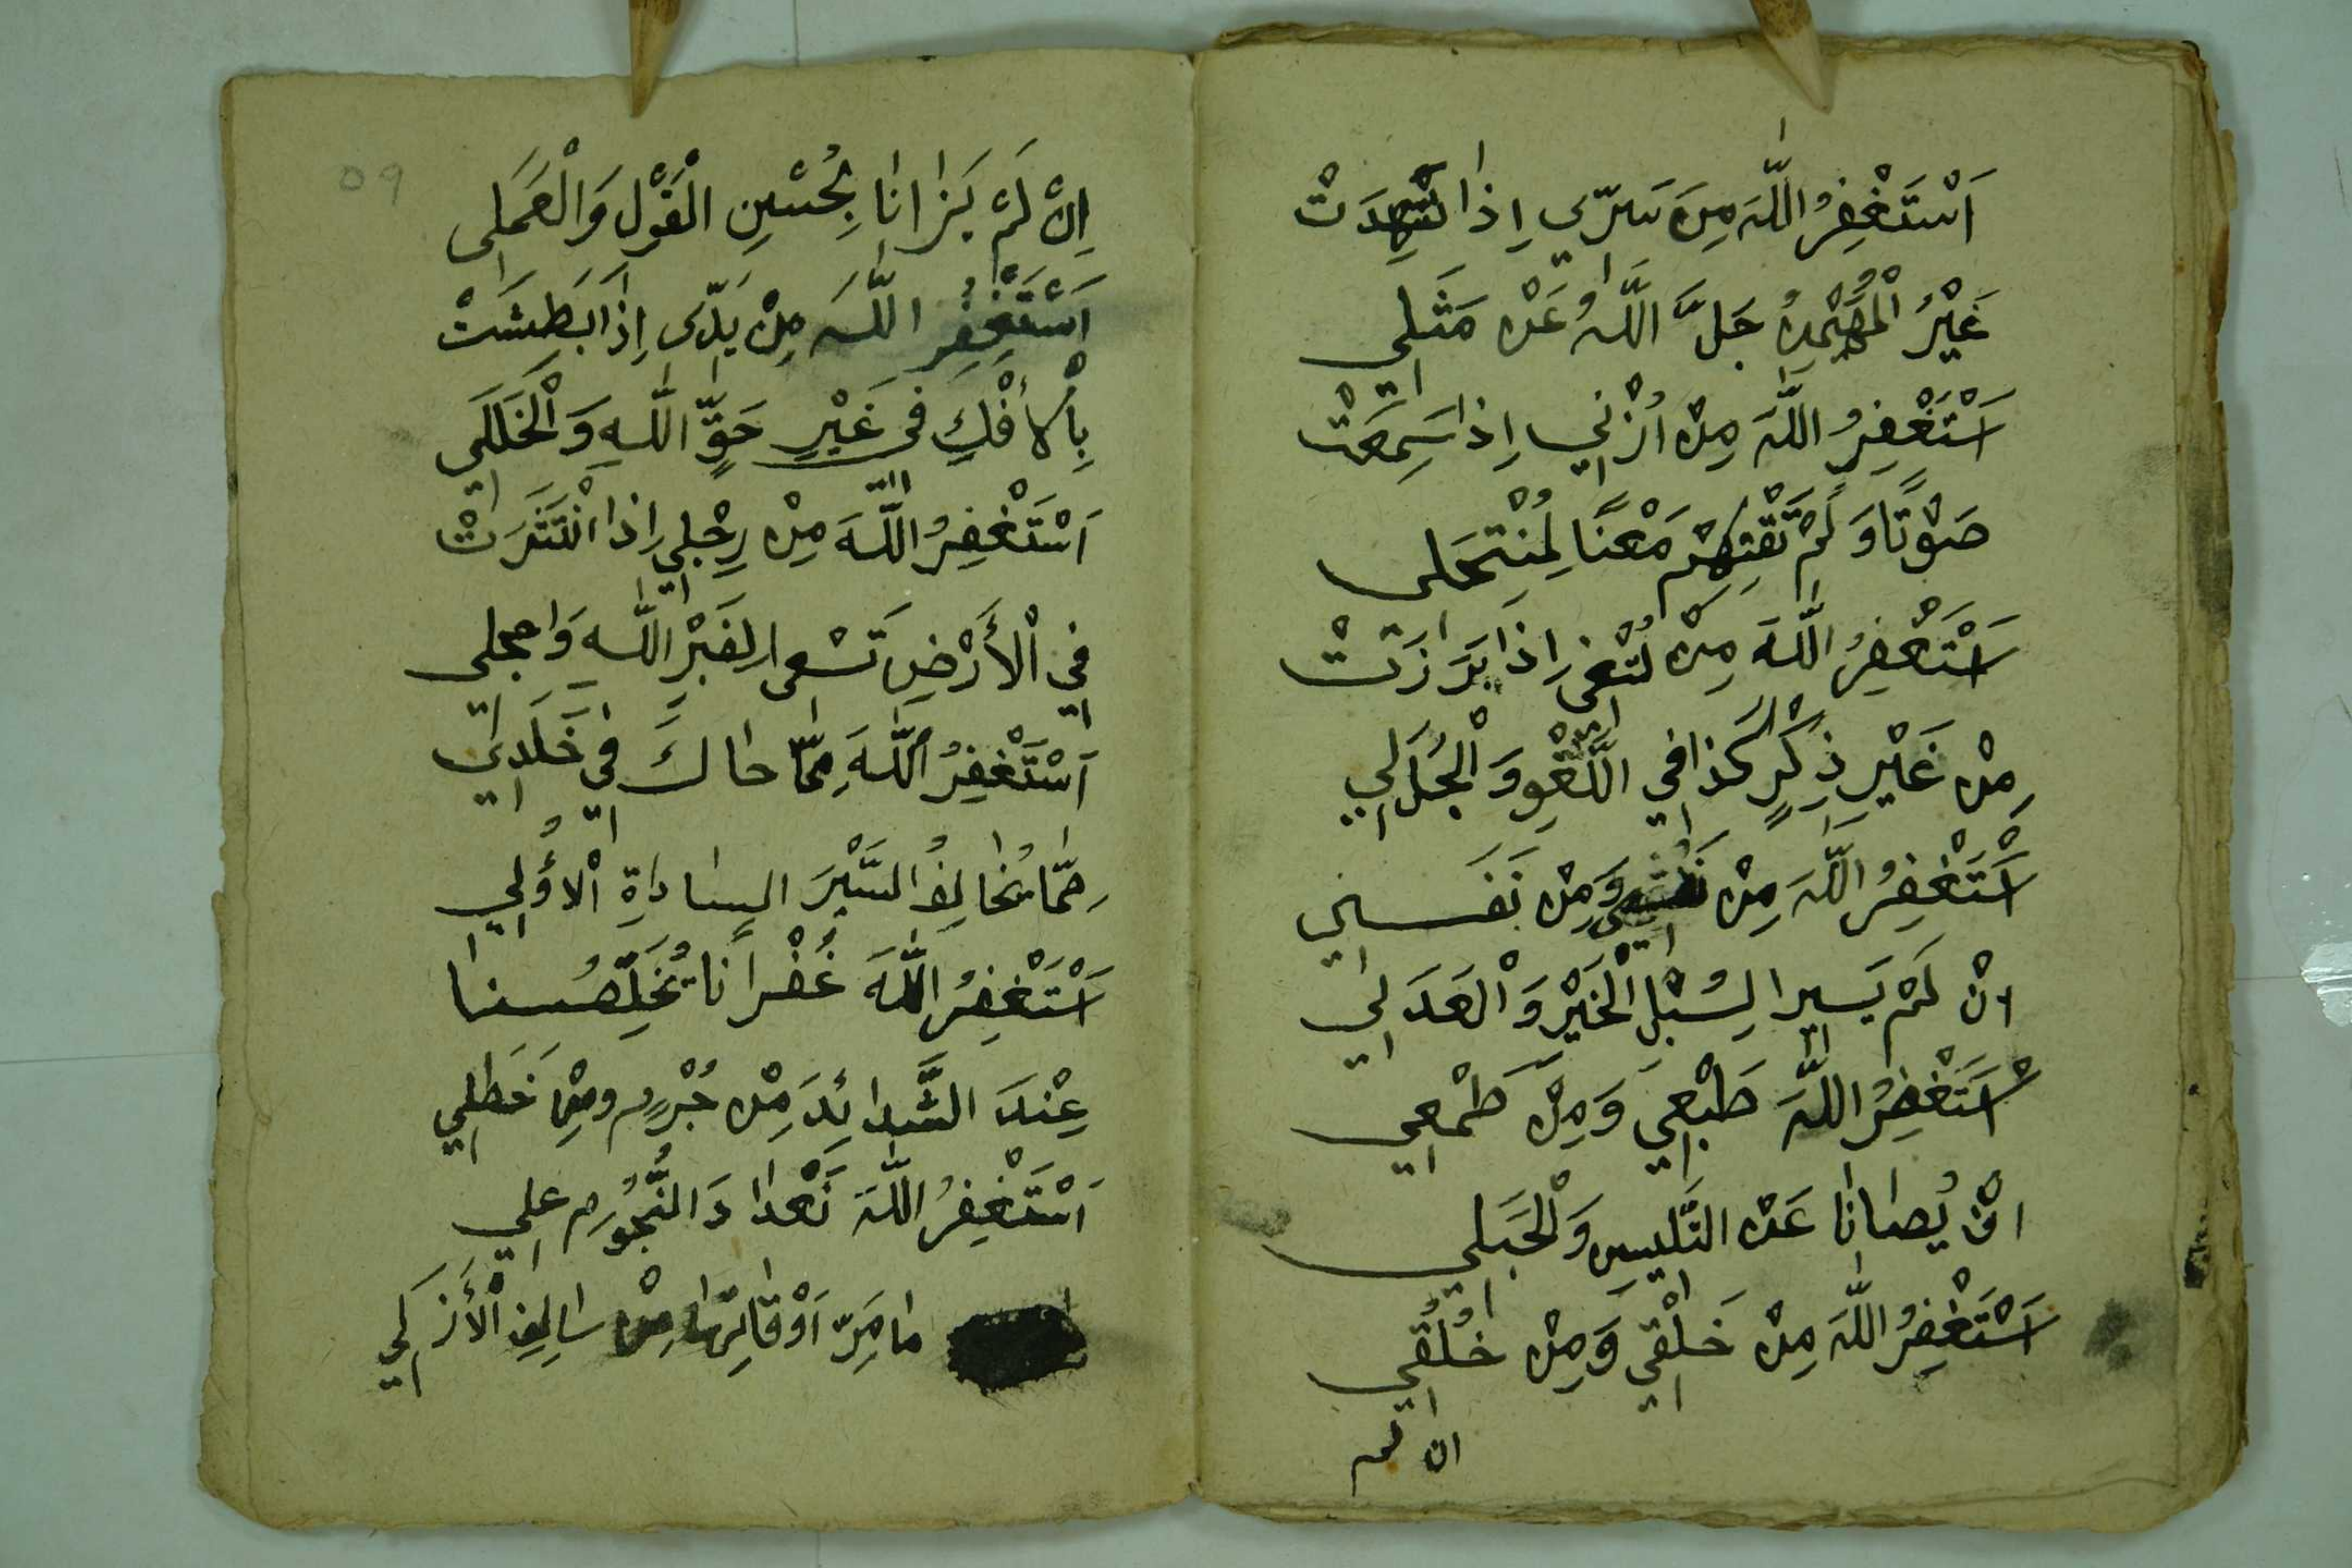 اَسْتَغْفِرُ اللّٰهَ مِنَ سَرّيِ اِذا شَهِدَتْ
غَيْرُ الْمُهَيْمِنُ جَلَّ اللّٰهُ عَنْ مَثَلِي
اَسْتَغْفِرُ اللّٰهَ مِنْ اُذْنِي اِذا سَمِعَتْ
صَوْتًا وَلَمْ تَفْتَهِمْ مَعْنًا لِمُنْتَحَلى
اَسْتَغْفِرُ اللّٰهَ مِنْ اِذَا بَرَزَتْ
مِنْ غَيْرِ ذِكْرٍ كَذا فِي اللَّغْوِ وَالْجَدَلِي
اَسْتَغْفِرُ اللّٰهَ مِنْ نَفْسِي وَمِنْ نَفَسِي
انْ لَمْ يَسِيرا لِسُبْلِ الْخَيْرِ وَالْعَدَلِي
اَسْتَغْفِرُ اللّٰهَ طَبْعِي وَمِنْ طَمْعِي
انْ يُصَانَا عَنْ وَالْحَبَلِي
اَسْتَغْفِرُ اللّٰهَ مِنْ خَلْقِي وَمِنْ خُلُقِي
ان لم
اِنْ لَمْ يَزَانَا بِحُسْنِ الْقَوْلِ وَالْعَمَلِي
اَسْتَغْفِرُ اللّٰهَ مِنْ يَدّى اِذَا بَطَشَتْ
بِالأفْكِ فى غَيْرِ حَقٍّ اللّٰهِ وَالْخَلَلَى
اَسْتَغْفِرُ اللّٰهَ مِنْ رِجْلِي اِذا انْتَشَرَتْ
فِي الْأَرْضِ تَسْعى لِغَيْرِ اللّٰهِ
اَسْتَغْفِرُ اللّٰهَ مِمَّا حَاكَ فِي خَلَدِي
مِمَّا يُخَالِفُ السَّيْرَ السادَاةِ الْأُوَلِي
اَسْتَغْفِرُ اللّٰهَ غُفْرَانَا يُخَلِّصُنَا
عِنْدَ الشَّدائِدَ مِنْ جُرْمٍ ومِنْ خَطَلِي
اَسْتَغْفِرُ اللّٰهَ تَعْدادَ النُّجُوْمِ عَلِي
مَا مَرّ اَوْقَاتِهَا مِنْ سَالِفِ الْأَزَلِي